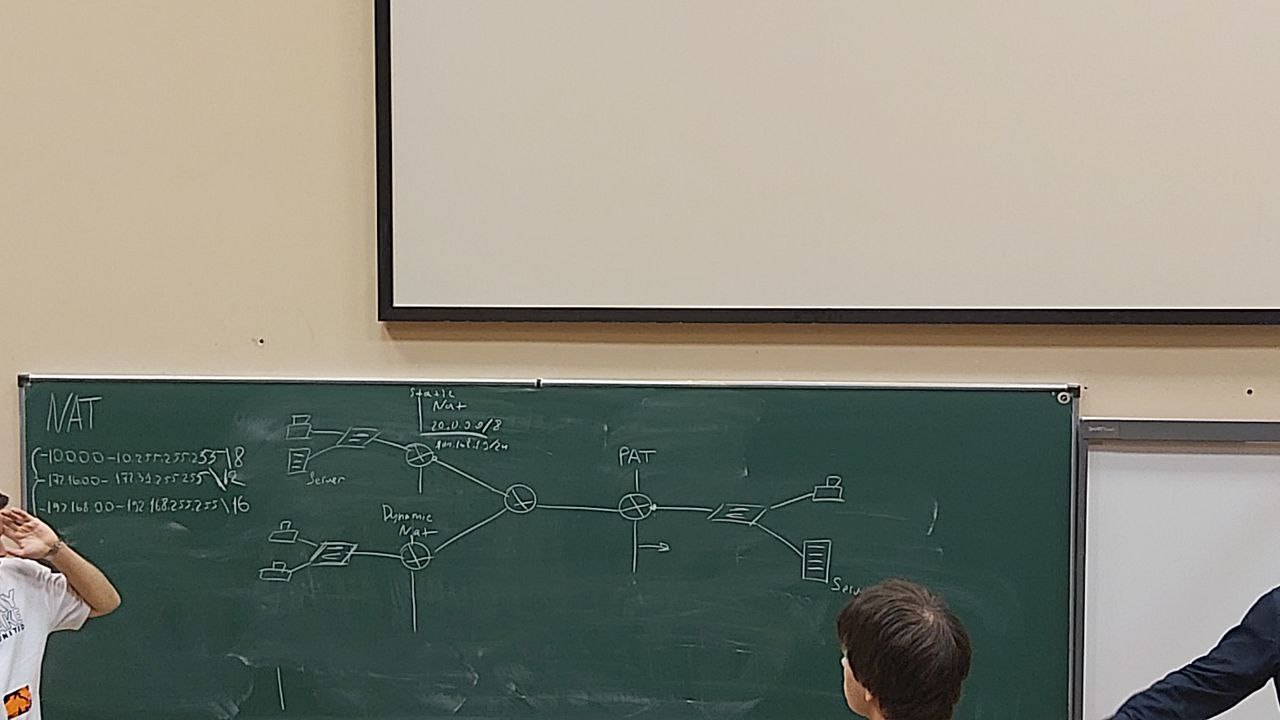 NAT
-10.0.0.0-10.255.255.255\8
-172.16.0.0-172.31.255.255\12
-192.168.0.0-192.168.255.255\16
Static
Nat
20.0.0.0/8
Server
Dynamic
Nat
PAT